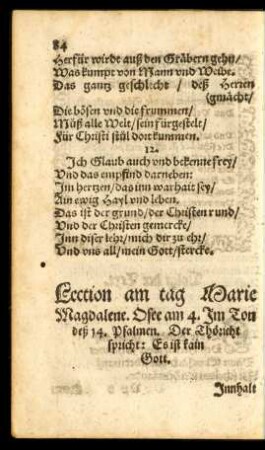 84
Herfür wirdt auß den Gräbern gehn/
Was kumpt von Mann vnd Weibe.
Das gantz geschlecht / deß Herren
(gmächt/
Die bösen vnd die frummen/
Müß alle Welt/ sein fürgestelt/
Für Christi stůl dort kummen.
12.
Ich Glaub auch vnd bekenne frey/
Vnd das empfind darneben:
Im hertzen/ das inn warhait sey/
Ain ewig Hayl vnd leben.
Das ist der grund/ der Christen rund/
Vnd der Christen gemercke/
Inn diser lehr/ mich dir zu ehr/
Vnd vns all/ mein Gott/ stercke.
Lection am tag Marie
Magdalene. Osee am 4. Im Ton
deß 14. Psalmen. Der Thöricht
spricht: Es ist kain
Gott.
Innhalt